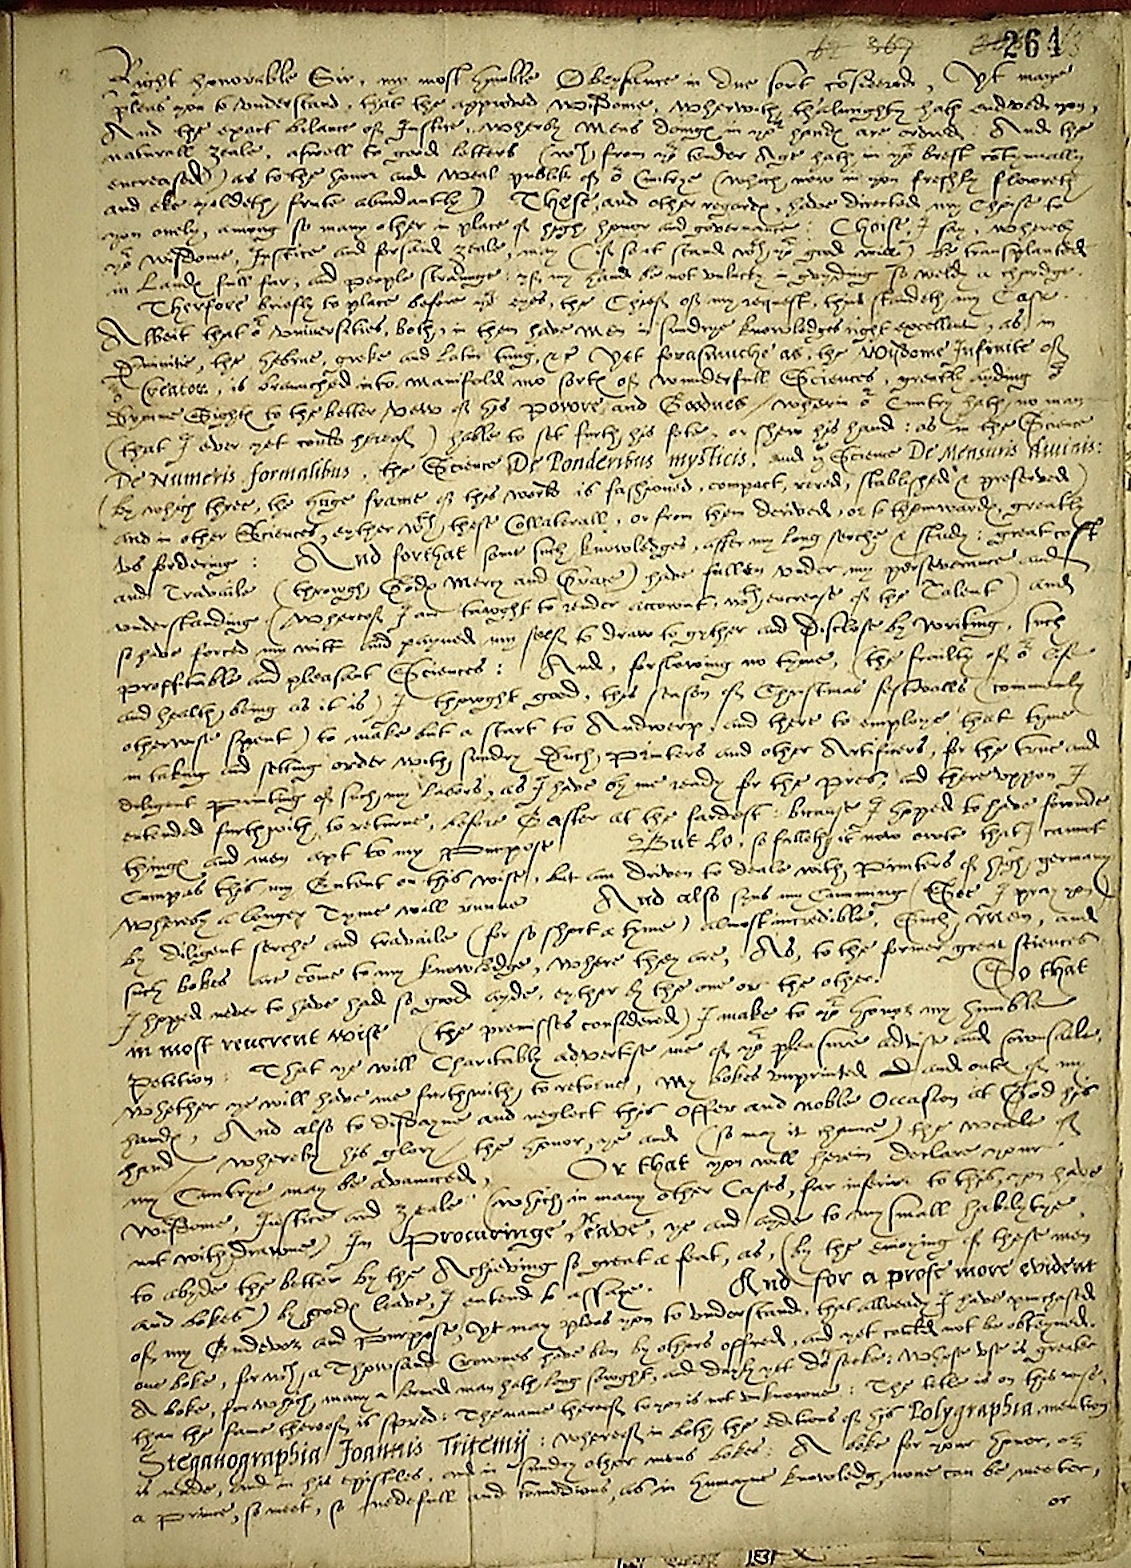 264
Right honorable Sir, my most humble Obeysance in due sort considered, Yt maye
pleas you to understand, that the approved Wisdome, wherwith thalmighty hath endued you,
And the exact bilance of Justice, wherby Mens doings in yor hands are ordred: And the
naturall zeale, aswell to good letters (wch from yor tender Age hath in yor brest contynually
encreased) as to the honor and weal publik of or Cuntrye (which now in you freshly floweth
and eke yeldeth frute abundantly) These, and other regards, have directed my Choise to
you onely, among so many other in place of high honor and governance: Choise I say, wherby
yor wisdome, Justice and zeale, may (if so it stand wth yor good will) be transplanted
in Lands full far, and people straunge: yf, my hand be not unlucky in gwyding so weldy a chardge.
Therfore briefly to place before yor eyes, the Chief of my request, thus standeth my Case.
Albeit that or Universities, both, in them have Men in sundrye knowledges right excellent, as, in
Divinitie, the hebrue, greke and latin tung, &c Yet forasmuche as, the Wisdome Infinite of
or Creator, is braunched into manifold mo sorts of wunderfull Sciences, greatly ayding or
dymme Sights to the better vew of his Powre and Goodnes, wherin or Cuntry hath no man
(that I ever yet could hereof) hable to set furth his fote, or shew his hand: as in the Science
De Numeris formalibus, the Science De Ponderibus mysticis, and ye Science De Mensuris divinis:
(by which three, the huge frame of this world is fashioned, compact, rered, stablished & preserved)
and in other Sciences, eyther wth these Collaterall, or from them derived, or to themwards, greatly
us fordering: And forthat some such knowledges, after my long serche & study: great cost
and Travaile (through Gods Mercy and Grace) have fallen under my perseverance and
understanding (Wherof I am tawght to render accownt, wth encrease of the Talent) and
so have forced my witt and payned my self to draw to gyther and Disclose by writing, such
proffitable and pleasant Sciences: And, forslowing no tyme, (the frailty of or life
and health, being as it is) I thowght good, this season of Christmas festivalls (commonly
otherwise spent) to make but a start to Andwerp, and there to employe that tyme
in taking and setting order with sundry Duch, printers and other Artificers, for the true and
diligent Printing of such my labors, as I have by me ready for the Pres, and thereuppon I
entended furthwith to returne, before Easter at the fardest: because I hoped to have fownde
things and men apt to my Purpose But lo, so falleth it now owte that I cannot
Cumpas this my Entent on this wise, but am driven to deale with Printers of high germany
Wherby a longer Tyme will runne And also syns my Cumming (See I pray you)
by diligent serche and travaile (for so short a tyme) almost incredible, Such Men, and
such bokes are come to my knowledge, where they are, As, to the former great sciences
I hoped never to have had so good ayde, eyther by the one or the other. So that
in most reverent wise (the premisses considered) I make to yor honor my humble
Petition: That ye will Charitably advertise me of yor pleasure advise and cownsaile,
Whether ye will have me furthwith to retorne, My bokes unprinted and oute of my
hands, And also to disdayne and neglect this Offer and noble Occasion at God his
hand, Whereby his glory, the honor, ye and (so may it chance) the Weale of
my Cuntrye may be advaunced, Or that you will herein declare your
wisdome, Justice and zeale (which in many other Cases, far inferior to this, you have
not withdrawne) In Procuringe leave, ye and ayde to my small habilytye,
to abyde the better by the Achieving so great a feat, as, (by the enjoying of these men
and bokes) by gods leave, I entend to assaye. And for a profe more evident
of my Endevor and Purpose, Yt may pleas you to understand, that allready I have purchased
one boke, for wch a Thowsand Crownes have ben by others offred, and yet could not be obteyned.
A boke, for which, many a lerned man hath long sowght, and dayly yet doth seeke: Whose use is greater
than the fame therof is spred: The name therof to you is not unknowne: The title is on this wise,
Steganographia Joannis Tritemij: wherof in both the editions of his Polygraphia, mention
is made, and in his epistles, and in sundry other mens bokes: A boke for your honor, or
a Prince, so meet, so nedefull and comodious, as in humayne knowledg, none can be meeter,
or